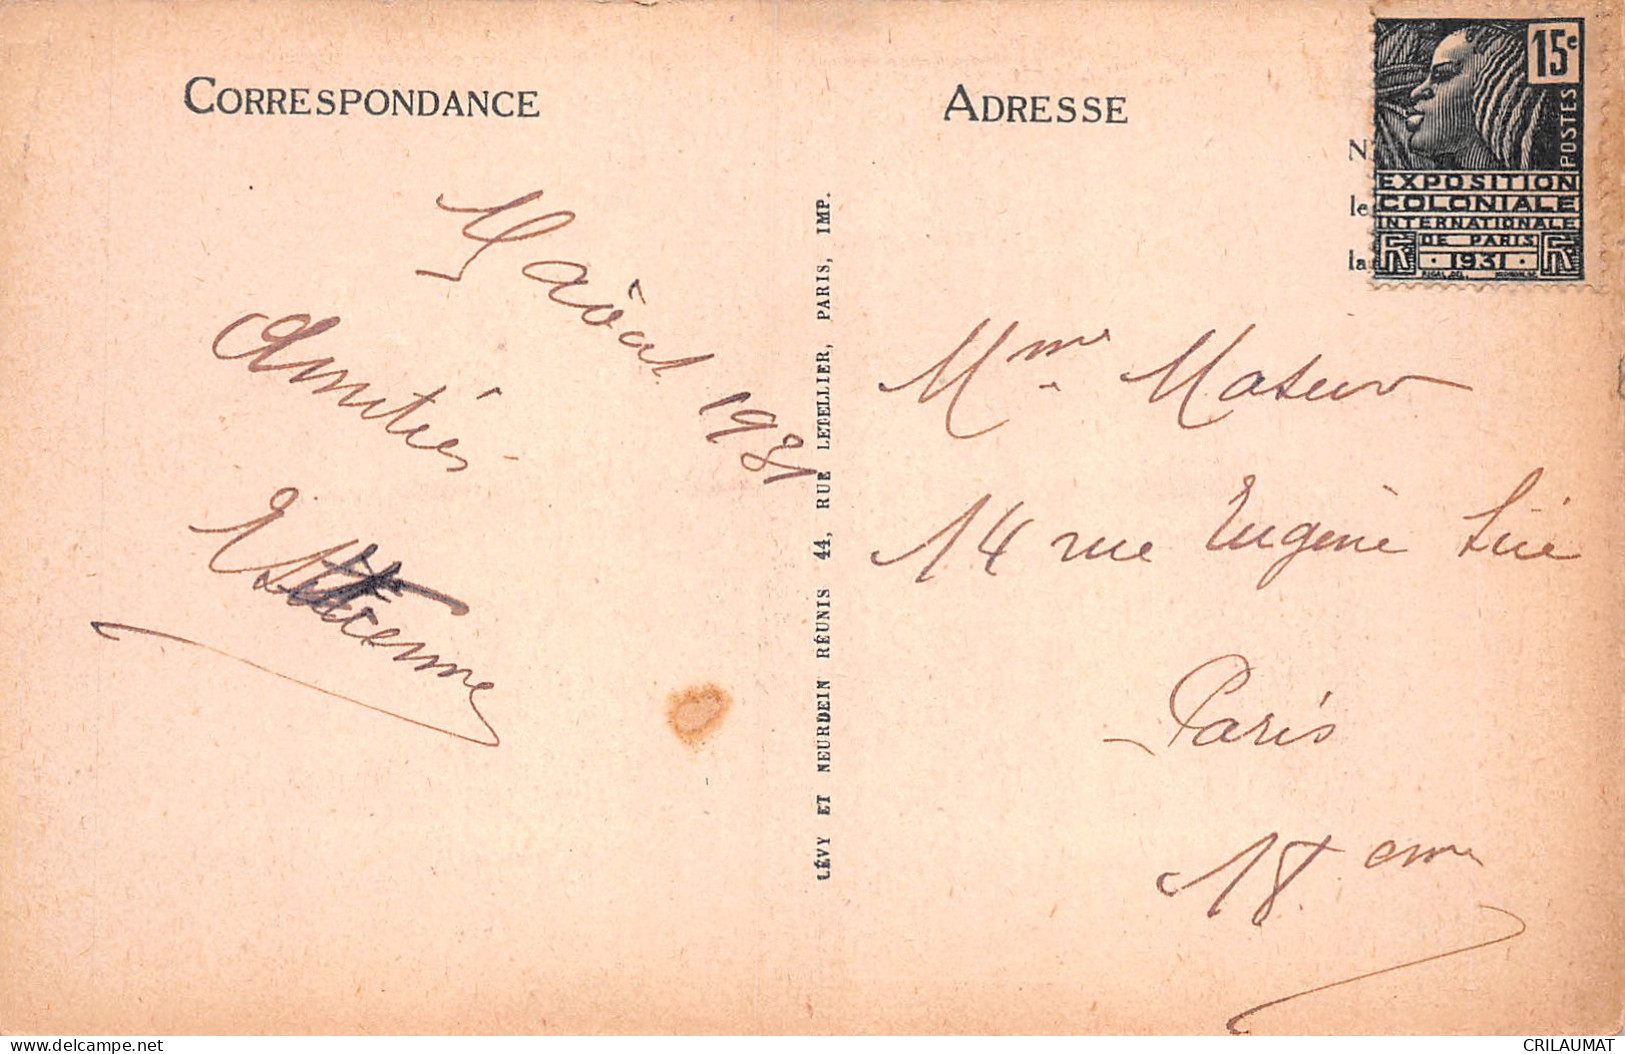 CORRESPONDANCE
août 1931
Amitiés
Etienne
LÉVY ET NEURDEIN RÉUNIS 44, RUE LETELLIER, PARIS, IMP.
ADRESSE
N
le
la
15c
POSTES
EXPOSITION
COLONIALE
INTERNATIONALE
DE PARIS
1931
RF RF
Mme
14 rue Eugène Süe
Paris
18 eme
delcampe.net
CRILAUMAT